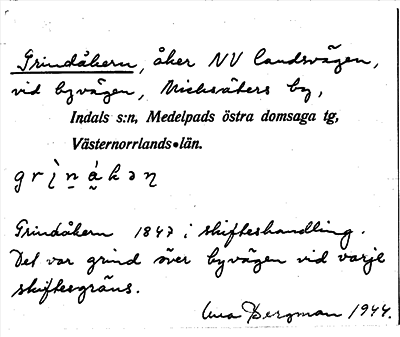 Grindåkern, åker NV landsvägen,
vid byvägen, Nicksäters by,
Indals s:n, Medelpads östra domsaga tg,
Västernorrlands län.
grìn̥ákən
Grindåkern 1847 i skifteshandling.
Det var grind över byvägen vid varje
skiftesgräns.
Bergman 1944.